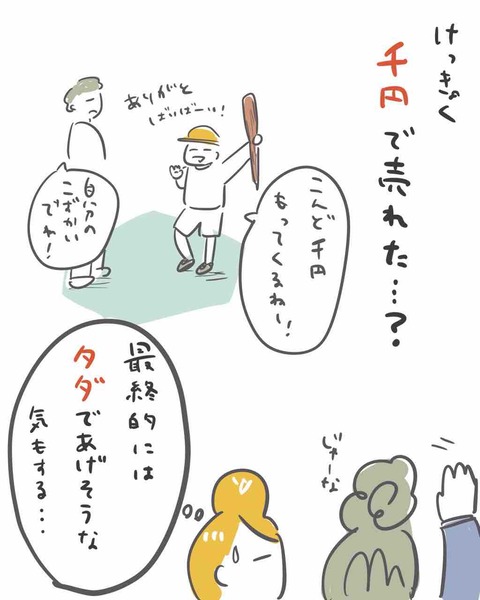 けっきょく
千円で売れた…?
ありがと
ばいばーい!
こんど千円
もってくるねー!
自分の
こづかい
でね!
じゃーな
最終的には
タダであげそうな
気もする…